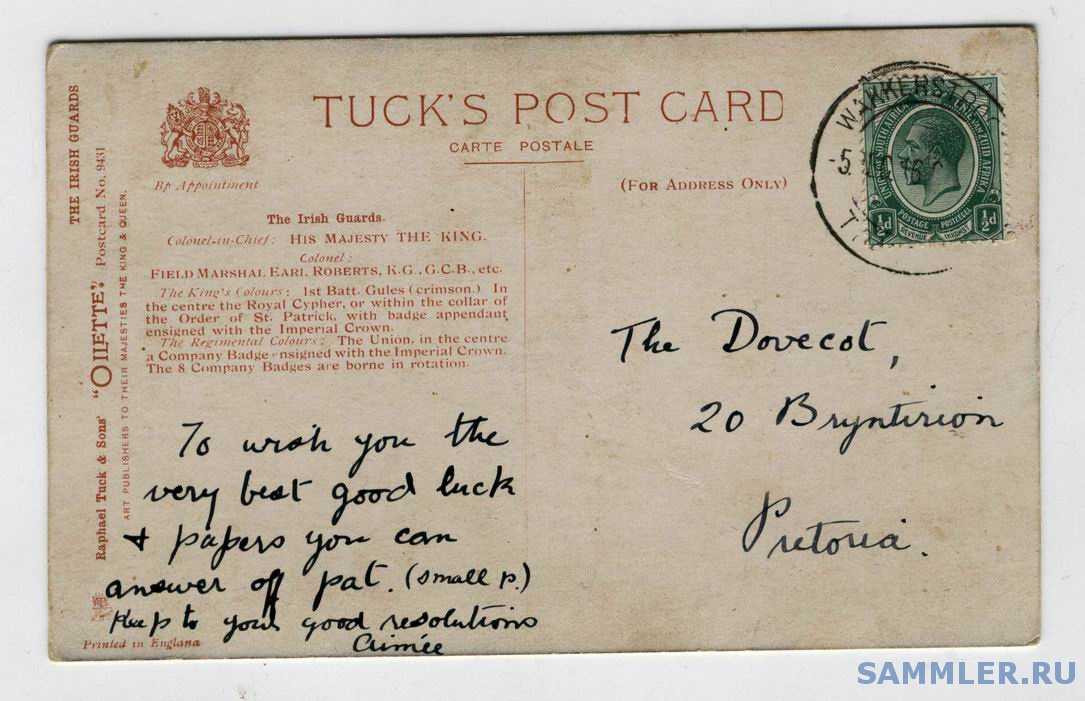 THE IRISH GUARDS
Raphael Tuck & Sons' "OILETTE" Postcard No. 9431
ART PUBLISHERS TO THEIR MAJESTIES THE KING & QUEEN.
By Appointment
TUCK'S POST CARD
CARTE POSTALE
(FOR ADDRESS ONLY)
The Irish Guards.
Colonel-in-Chief: HIS MAJESTY THE KING.
Colonel:
FIELD MARSHAL EARL ROBERTS, K.G., G.C.B., etc.
The King's Colours: 1st Batt. Gules (crimson.) In
the centre the Royal Cypher, or within the collar of
the Order of St. Patrick, with badge appendant
ensigned with the Imperial Crown.
The Regimental Colours: The Union, in the centre
a Company Badge ensigned with the Imperial Crown.
The 8 Company Badges are borne in rotation.
To wish you the
very best good luck
& papers you can
answer off pat. (small p.)
Keep to your good resolutions
Aimée
Printed in England
WAKKERSTR
UNION OF SOUTH AFRICA
UNIE VAN ZUID AFRIKA
POSTAGE POSTZEGEL
REVENUE INKOMST
½d ½d
The Dovecot,
20 Bryntirion
Pretoria.
SAMMLER.RU